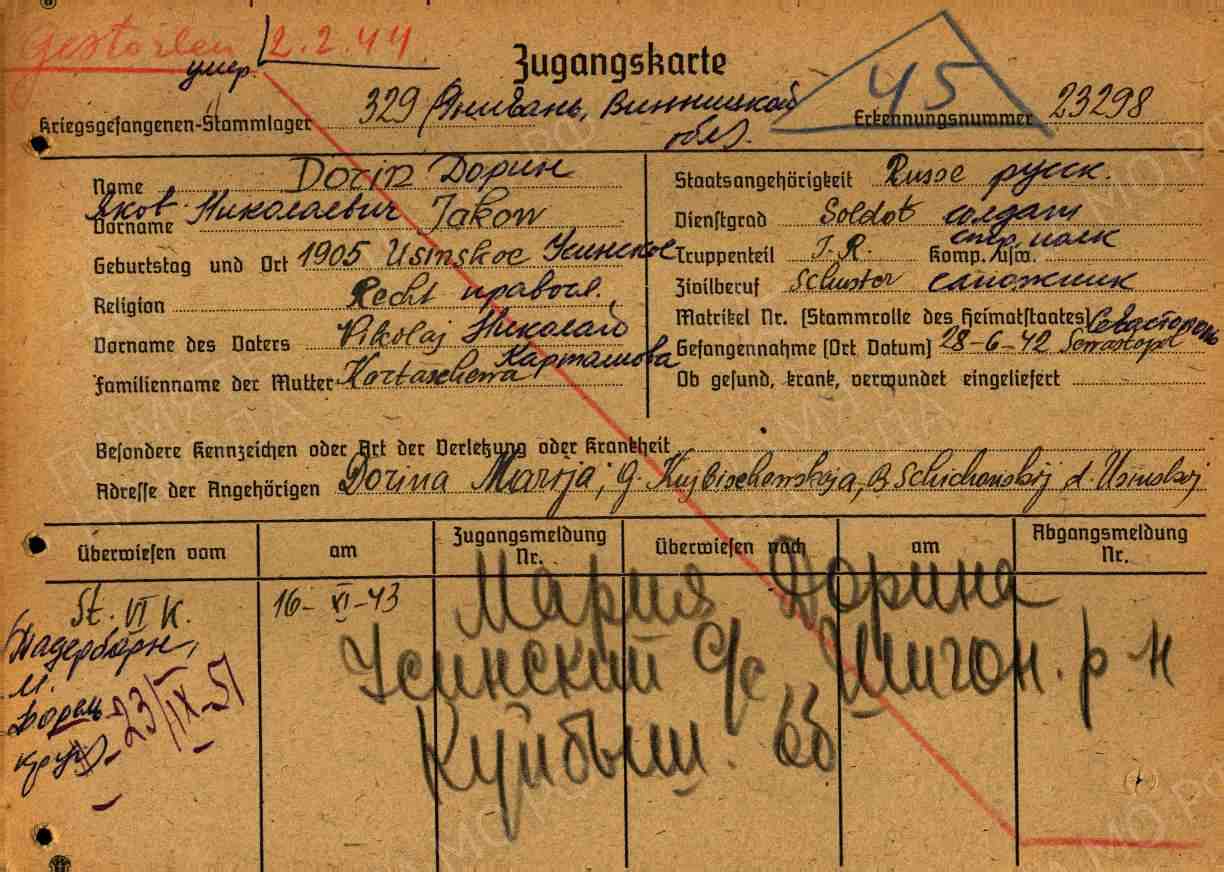 Gestorben 2.2.44
умер.
Zugangskarte
45
Kriegsgefangenen-Stammlager 329 Винницкой Erkennungsnummer 23298
обл.
Name Dorin Дорин
Яков Николаевич
Vorname Jakow
Geburtstag und Ort 1905 Usinskoe Усинское
Religion Recht правосл.
Vorname des Vaters Nikolaj Николай
Карташова
Familienname der Mutter Kartaschewa
Staatsangehörigkeit Russe русск.
Dienstgrad Soldat солдат
стр. полк
Truppenteil I.R. Komp. usw.
Zivilberuf Schuster сапожник
Matrikel Nr. (Stammrolle des Heimatstaates) Севастополь
Gefangennahme (Ort Datum) 28-6-42 Sewastopol
Ob gesund, krank, verwundet eingeliefert
Besondere Kennzeichen oder Art der Verletzung oder Krankheit
Adresse der Angehörigen Dorina Marija, g. Kujbischewskaja, R Schichonskij d. Usinskij
Überwiesen vom am Zugangsmeldung Nr. Überwiesen nach am Abgangsmeldung Nr.
St. VI K. 16-XI-43
Мария Дорина
Усинский с/с Шигон. р н
Куйбыш. об
Падерборн,
м.
23/IX-51